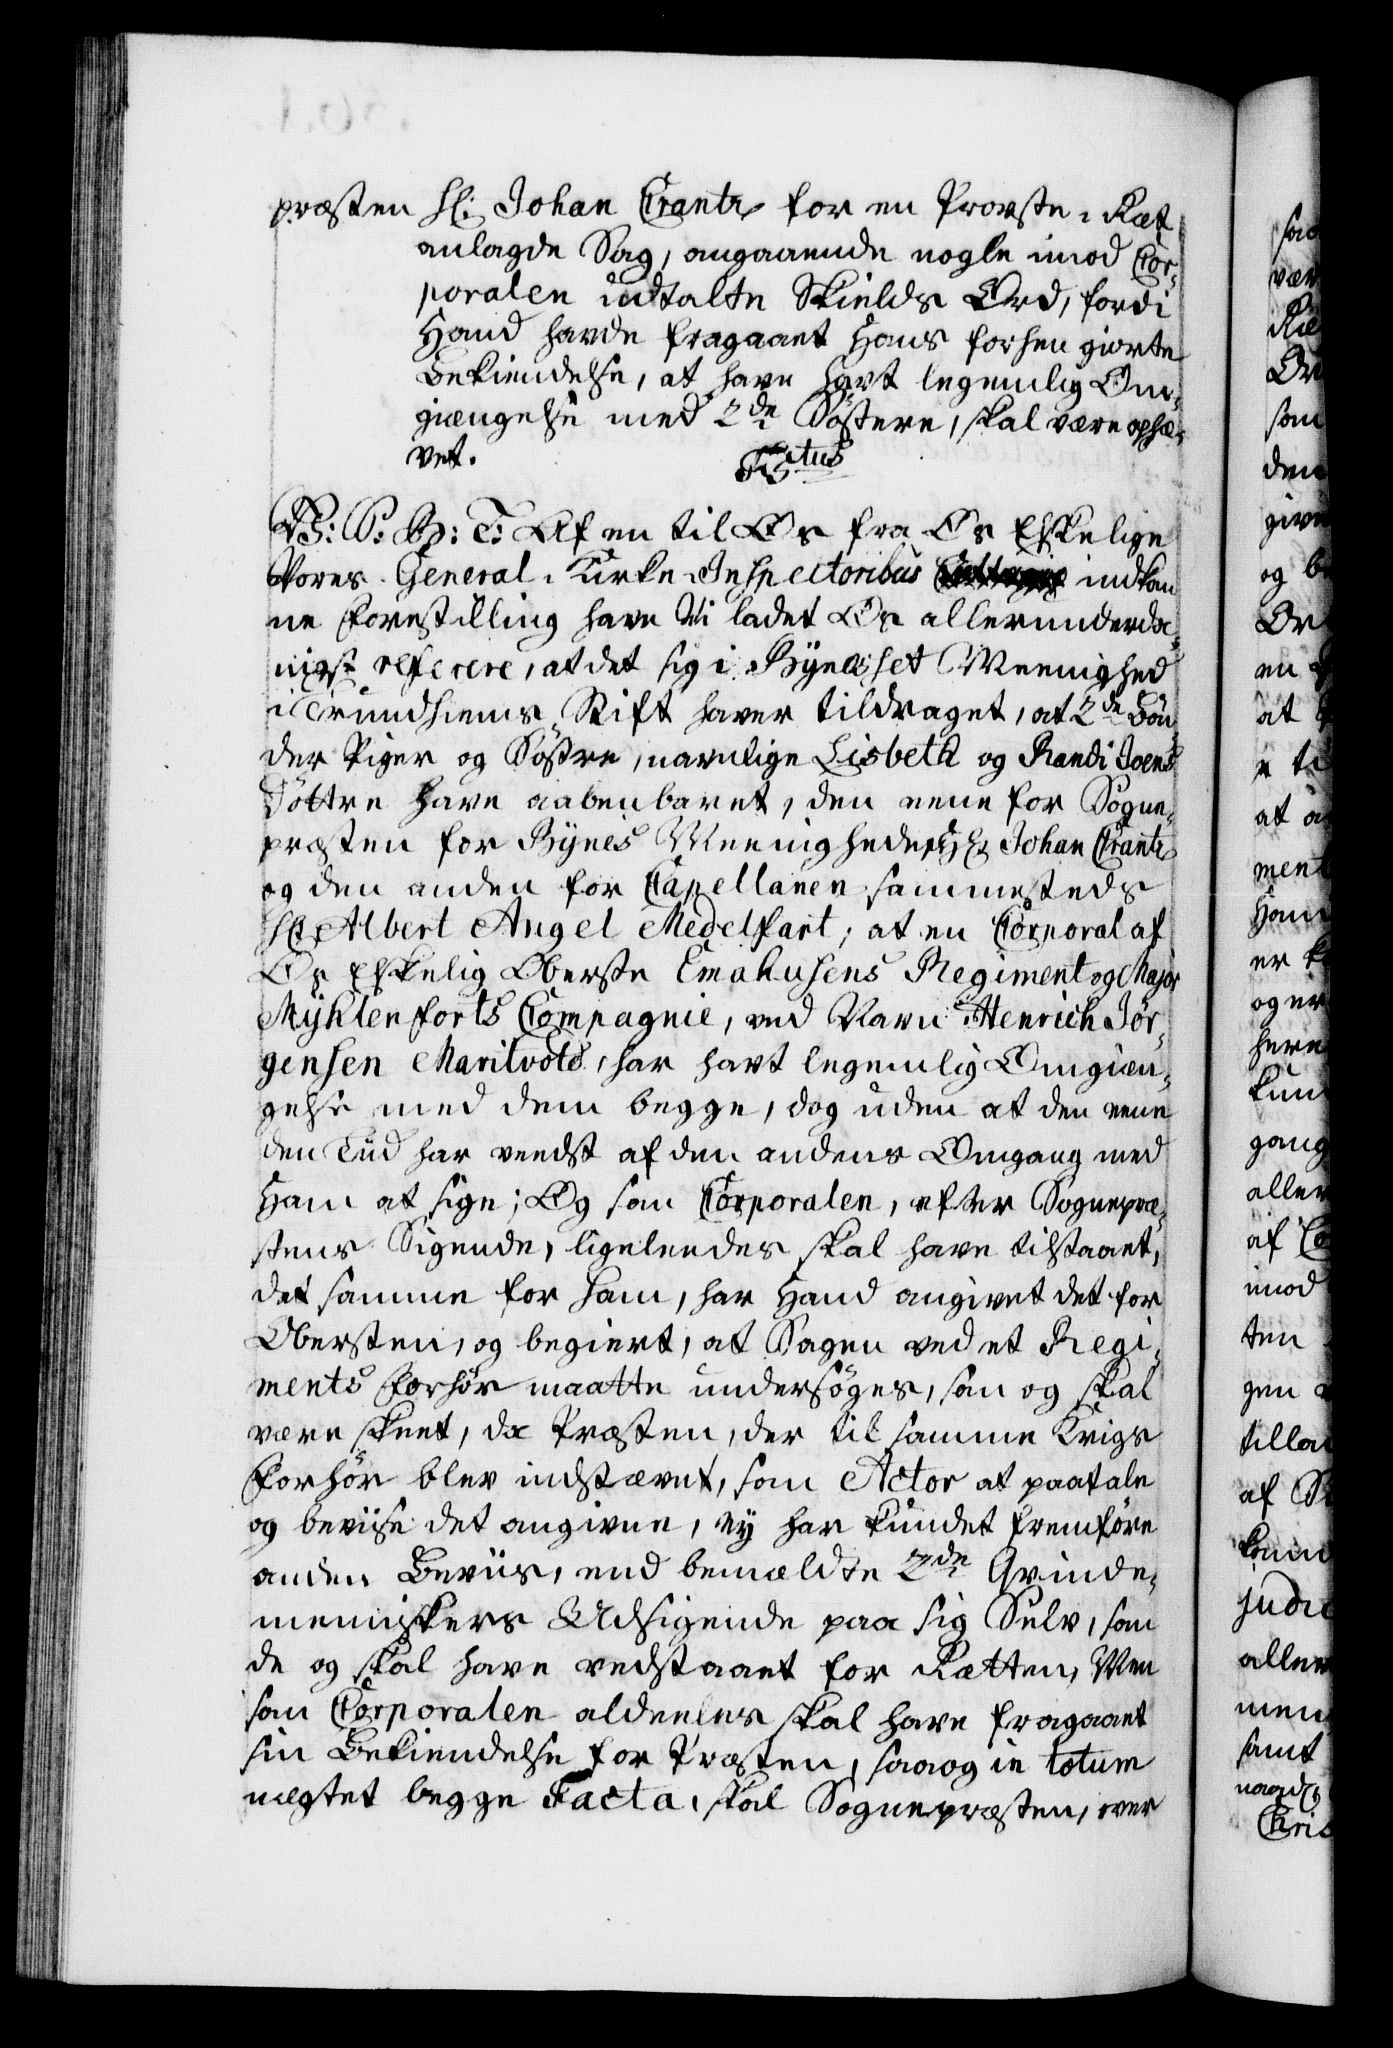 præsten Hr: Johan Crantz for en Provste-Ræt
anlagde Sag, angaaende nogle imod Cor-
poralen udtalte Skields Ord, fordi
Hand havde fragaaet Hans forhen giorte
Bekiendelse, at have havt legemlig Om-
giængelse med 2de Søstere, skal være ophæ-
vet.
V: S: B: T: Af en til Os fra Os Elskelige
Vores General-Kirke-Inspectoribus indkom-
ne Forestilling have Vi ladet Os allerunderda-
nigst referere, at det sig i Byneset Meenighed
i Trundhiems Stift haver tildraget, at 2de Bøn-
der Piger og Søstre, navnlige Lisbeth og Randi Joens
Døttre have aabenbaret, den eene for Sogne-
præsten for Bynes Meenigheder, Hr: Johan Crantz
og den anden for Capellanen sammesteds
Hr: Albert Angel Medelfart; at en Corporal af
Os Elskelig Oberste Emahusens Regiment og Major
Myhlenforts Compagnie, ved Navn Henrich Jør-
gensen Maritvold, har havt legemlig Omgiæn-
gelse med dem begge, dog uden at den eene
den Tiid har veedst af den andens Omgang med
Ham at sige; Og som Corporalen, efter Sognepræ-
stens Sigende, ligeleedes skal have tilstaaet,
det samme for ham, har Hand angivet det for
Obersten, og begiert, at Sagen ved et Regi-
ments Forhør maatte undersøges, som og skal
være skeet, da Præsten, der til samme Krigs
Forhør blev indstævnt, som Actor at paatale
og beviise det angivne, ey har kundet fremføre
anden Beviis, end bemældte 2de Qvinde-
menniskers Udsigende paa sig Selv, som
de og skal have vedstaaet for Rætten, Men
som Corporalen aldeeles skal have fragaaet
sin Bekiendelse for Præsten, saa og in totum
nægtet begge Facta, skal Sognepræsten, over